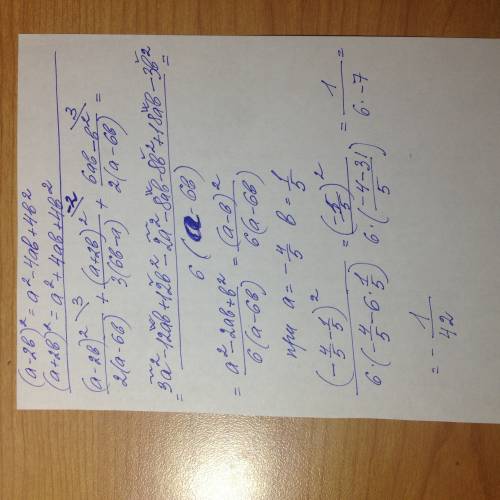 (a-2b)² = a²-4ab+4b²
(a+2b)² = a²+4ab+4b²
(a-2b)² \3 / 2(a-6b) + (a+2b)² \-2 / 3(6b-a) + 6ab-b² \3 / 2(a-6b)
= 3a²-12ab+12b²-2a²-8ab-8b²+18ab-3b² / 6(a-6b) =
= a²-2ab+b² / 6(a-6b) = (a-b)² / 6(a-6b)
при a = -4/5 b = 1/5
(-4/5-1/5)² / 6·(-4/5-6·1/5) = (-5/5)² / 6·(-4-31/5) = 1 / 6·-7 =
= -1/42